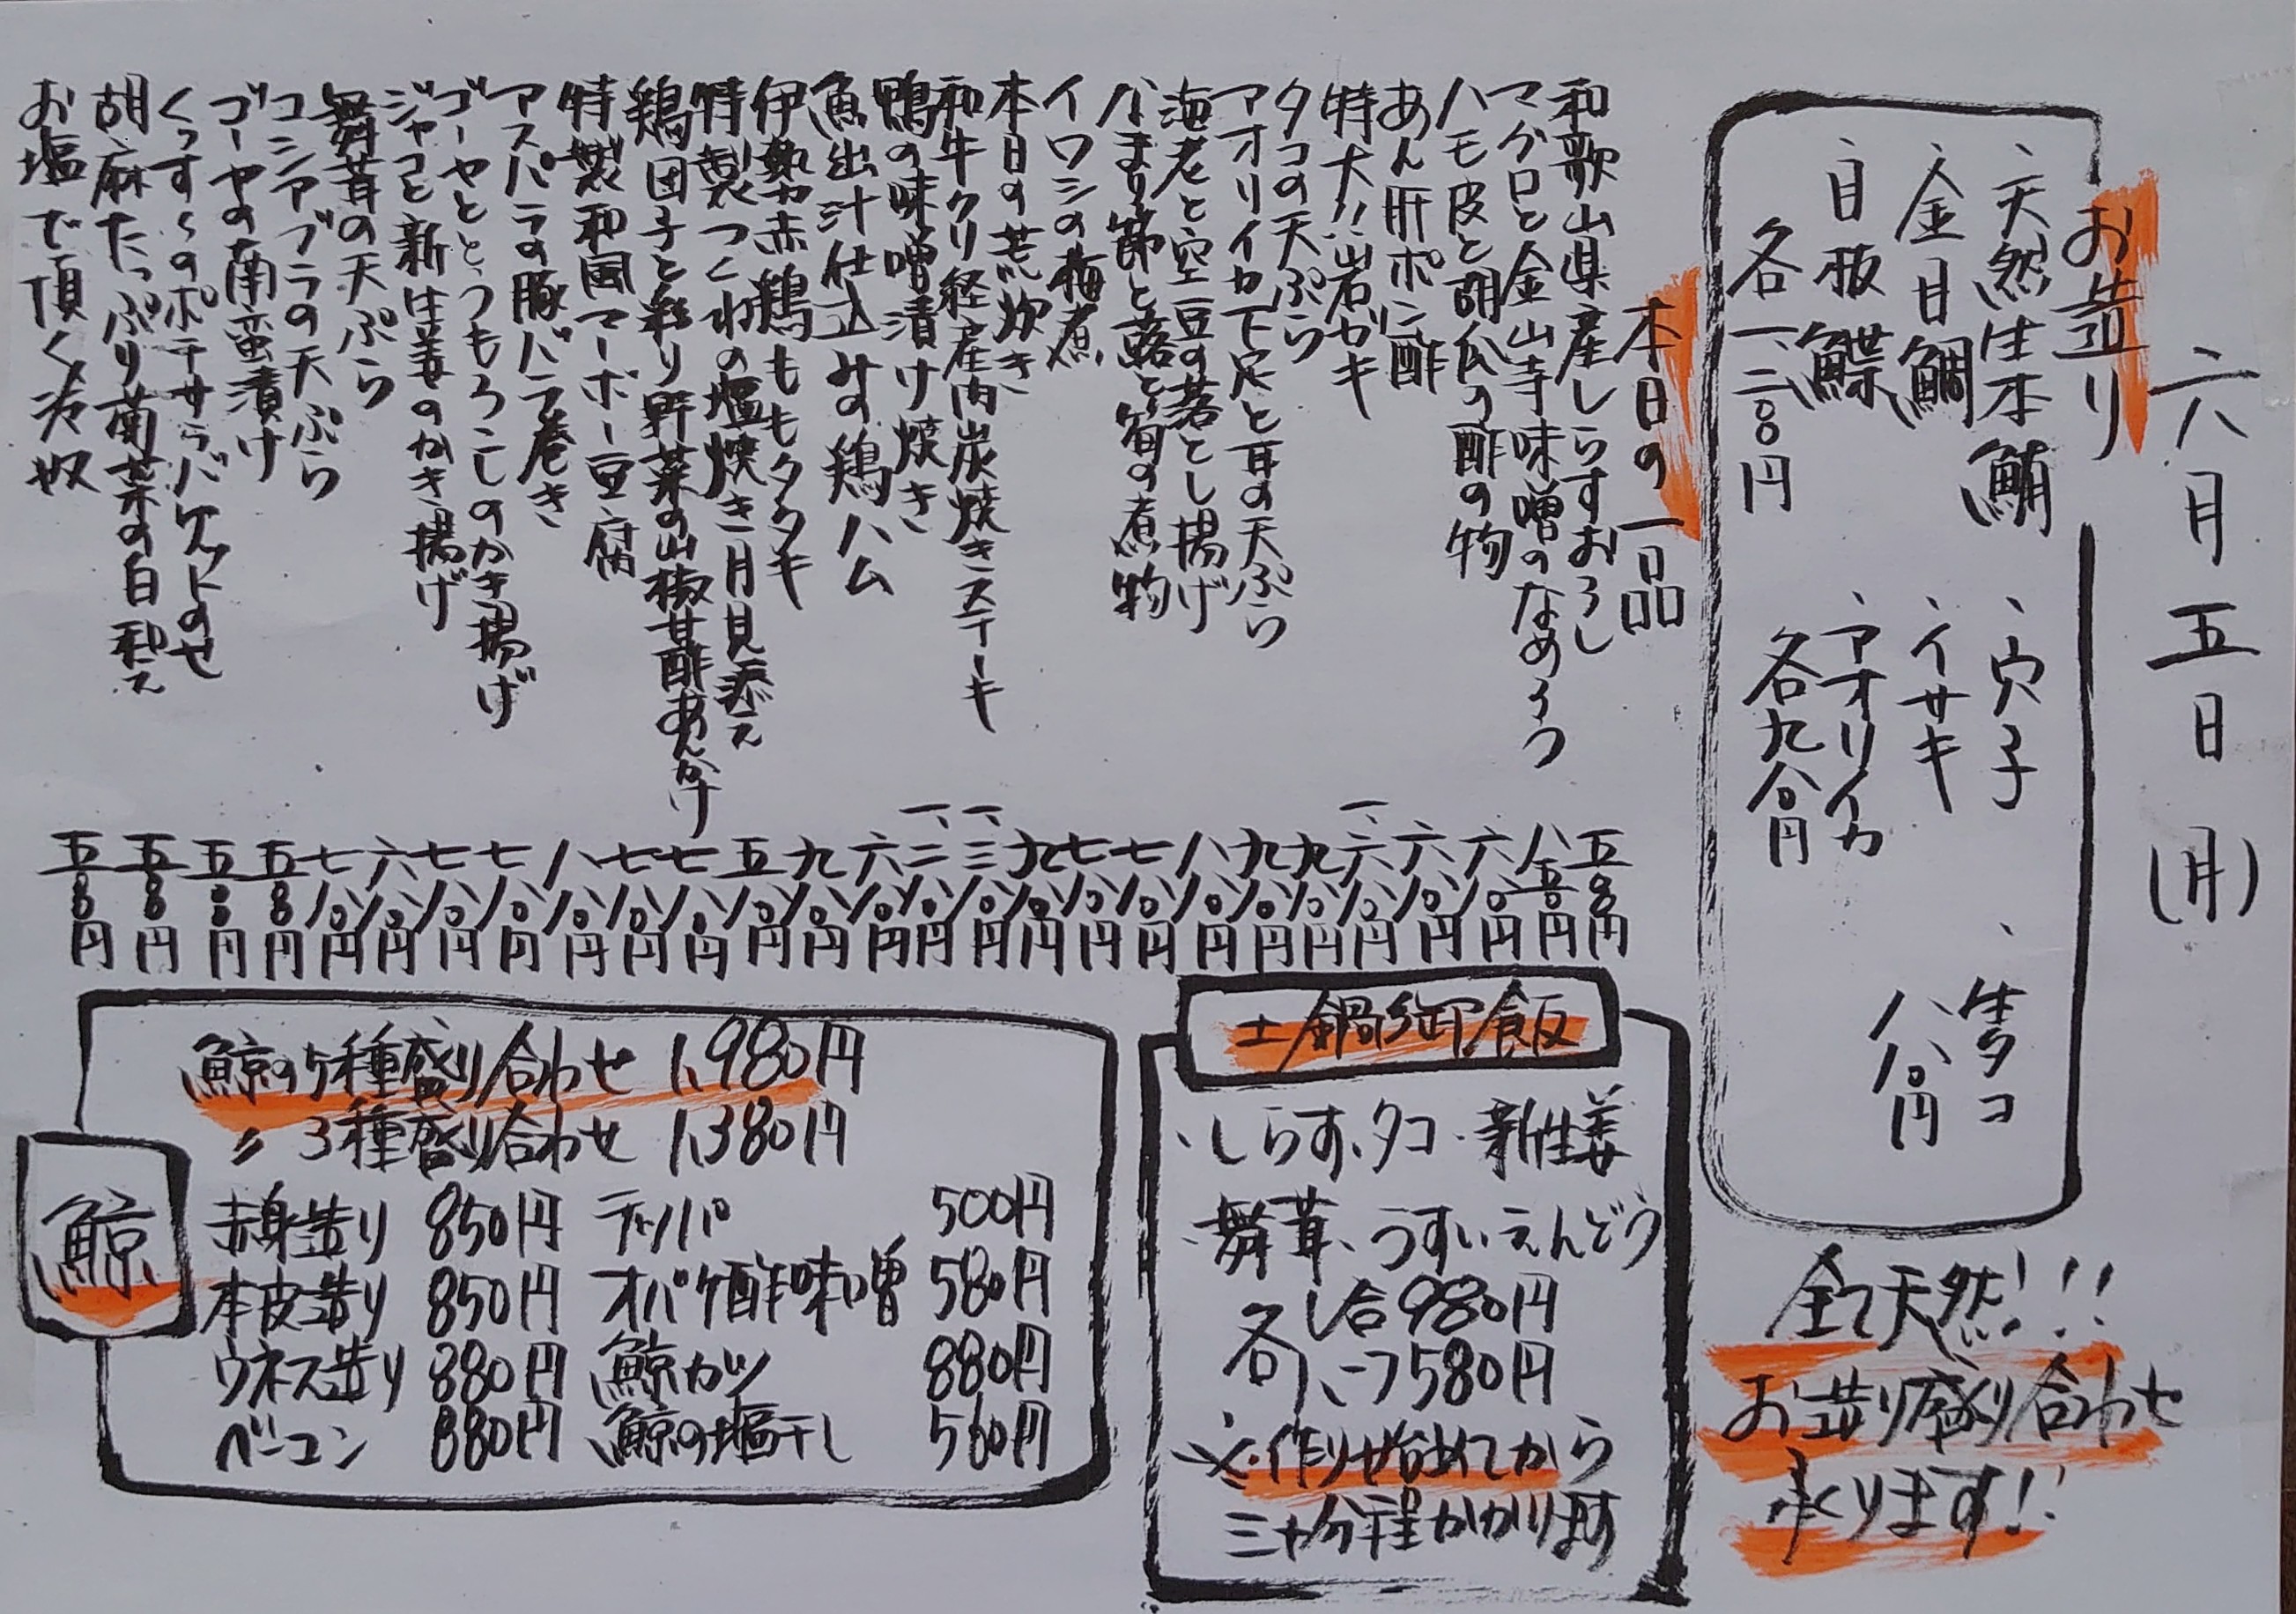 六月五日（月）
お造り
、天然生本鮪
、金目鯛
、目板鰈
各一、二〇〇円
、穴子
、イサキ
、アオリイカ
各九八〇円
、生タコ
八八〇円
全て天然!!!
お造り盛り合わせ
承ります!!
本日の一品
和歌山県産しらすおろし 五〇〇円
マグロと金山寺味噌のなめろう 八五〇円
ハモ皮と胡瓜の酢の物 六八〇円
あん肝ポン酢 六八〇円
特大!!岩ガキ 一、六八〇円
タコの天ぷら 九八〇円
アオリイカ下足と耳の天ぷら 九八〇円
海老と空豆の落とし揚げ 八八〇円
なまり節と蕗と筍の煮物 七八〇円
イワシの梅煮 七八〇円
本日の荒炊き 九八〇円
和牛クリ経産肉炭焼きステーキ 一、三八〇円
鴨の味噌漬け焼き 一、二八〇円
魚出汁仕込みの鶏ハム 六八〇円
伊勢赤鶏ももタタキ 九八〇円
特製つくねの塩焼き月見添え 五八〇円
鶏団子と彩り野菜の山椒甘酢あんかけ 七八〇円
特製和風マーボー豆腐 七八〇円
アスパラの豚バラ巻き 八八〇円
ゴーヤととうもろこしのかき揚げ 七八〇円
ジャコと新生姜のかき揚げ 七八〇円
舞茸の天ぷら 六八〇円
コシアブラの天ぷら 七八〇円
ゴーヤの南蛮漬け 五〇〇円
くっすくのポテサラバケットのせ 五〇〇円
胡麻たっぷり菊菜の白和え 五〇〇円
お塩で頂く冷奴 五〇〇円
土鍋御飯
、しらす、タコ、新生姜
、舞茸、うすいえんどう
各し合980円
各し二つ580円
※作り始めてから
三十分程かかります
鯨
鯨の5種盛り合わせ 1,980円
〃 3種盛り合わせ 1,380円
赤身造り 850円 テッパ 500円
本皮造り 850円 オバケ酢味噌 580円
ウネス造り 880円 鯨カツ 880円
ベーコン 880円 鯨の塩干し 560円